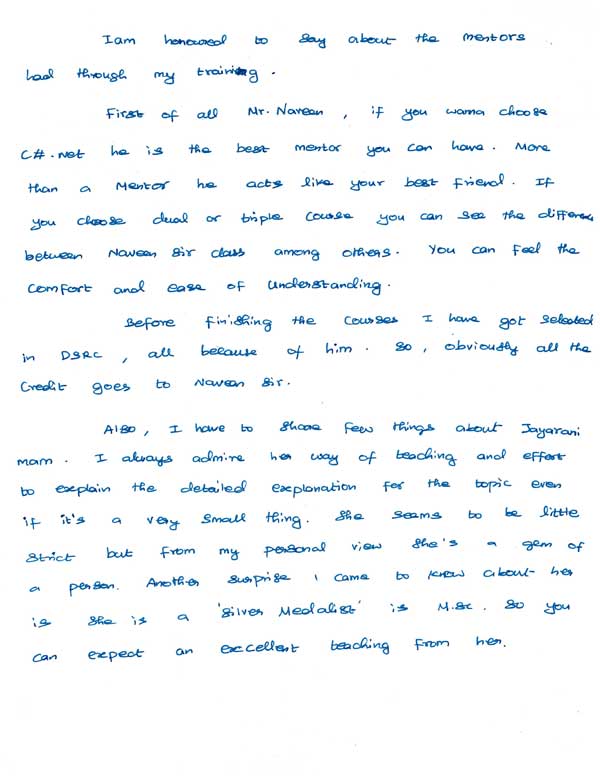 I am honoured to say about the mentors
had through my training.
First of all Mr. Naveen, if you wanna choose
C#.net he is the best mentor you can have. More
than a Mentor he acts like your best friend. If
you choose dual or triple course you can see the differenc
between Naveen Sir class among others. You can feel the
comfort and ease of understanding.
Before finishing the courses I have got selected
in DSRC, all because of him. So, obviously all the
Credit goes to Naveen Sir.
Also, I have to share few things about Jayarani
mam. I always admire her way of teaching and effort
to explain the detailed explanation for the topic even
if it's a very small thing. She seams to be little
strict but from my personal view she's a gem of
a person. Another surprise I came to know about her
is she is a 'Silver Medalist' is M.Sc. So you
can expect an excellent teaching from her.